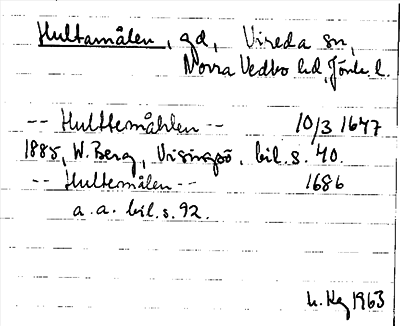 Hultamålen, gd, Vireda sn,
Norra Vedbo hd, Jönk. l.
-- Hulttemåhlen -- 10/3 1647
1885, W. Berg, Visingsö, bil. s. 40.
-- Hultemålen -- 1686
a. a. bil. s. 92.
1963